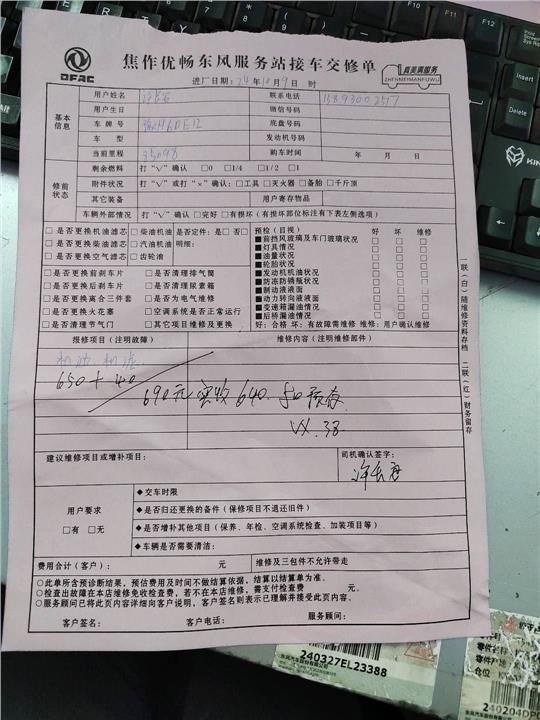 DFAC
焦作优畅东风服务站接车交修单
真美满服务
ZHENMEIMANFUWU
进厂日期：24年10月9日 时
基本信息
用户姓名 联系电话
用户生日 微信号码
车牌号 底盘号码
车型 发动机号码
当前里程 35098 购车时间 年 月 日
修前状态
剩余燃料 打“√”确认 □0 □1/4 □1/2 □1
附件状况 打“√”或打“×”确认：□工具 □灭火器 □备胎 □千斤顶
其它装备 用户寄存物品
车辆外部情况 打“√”确认 □完好 □有损坏（有损坏部位标注有下表左侧选项）
□是否更换机油滤芯 □柴油机油 是否定件：是□ 否□
□是否更换柴油滤芯 □汽油机油 明细：
□是否更换空气滤芯 □齿轮油
□是否更换前刹车片 □是否清理排气筒
□是否更换后刹车片 □是否清理尿素箱
□是否更换离合三件套 □是否为电气维修
□是否更换火花塞 □空调系统是否正常运行
□是否清理节气门 □其它项目维修及更换
预检（目视） 好 坏 维修
■前挡风玻璃及车门玻璃状况 □ □ □
■灯具情况 □ □ □
■油量状况 □ □ □
■轮胎状况 □ □ □
■发动机机油状况 □ □ □
■防冻防锈瓶状况 □ □ □
■制动液液面 □ □ □
■动力转向液液面 □ □ □
■变速器漏油情况 □ □ □
■后桥漏油情况 □ □ □
好：合格 坏：有故障需维修 维修：用户确认维修
报修项目（注明故障） 维修内容（注明维修部件）
机油.机滤
650+40
690元 实收640. 50预存.
VX.38
建议维修项目或增补项目：
司机确认签字：
用户要求
□有 □无
◆交车时限
◆是否归还更换的备件（保修项目不退旧件）
◆是否增补其他项目（保养、年检、空调系统检查、加装项目等）
◆车辆是否需要清洁：
费用合计（客户）： 元 维修及三包件不允许带走
○此单所含预诊断结果，预估费用及时间不做结算依据，结算以结算单为准。
○检查出故障在本店维修免收检查费，若不在本店维修，需支付检查费 元。
○服务顾问已将此页内容详细向客户说明，客户签名则表示已理解并接受此页内容。
客户签名： 客户电话： 服务顾问：
一联（白）随维修资料存档 二联（红）财务留存
240327EL23388